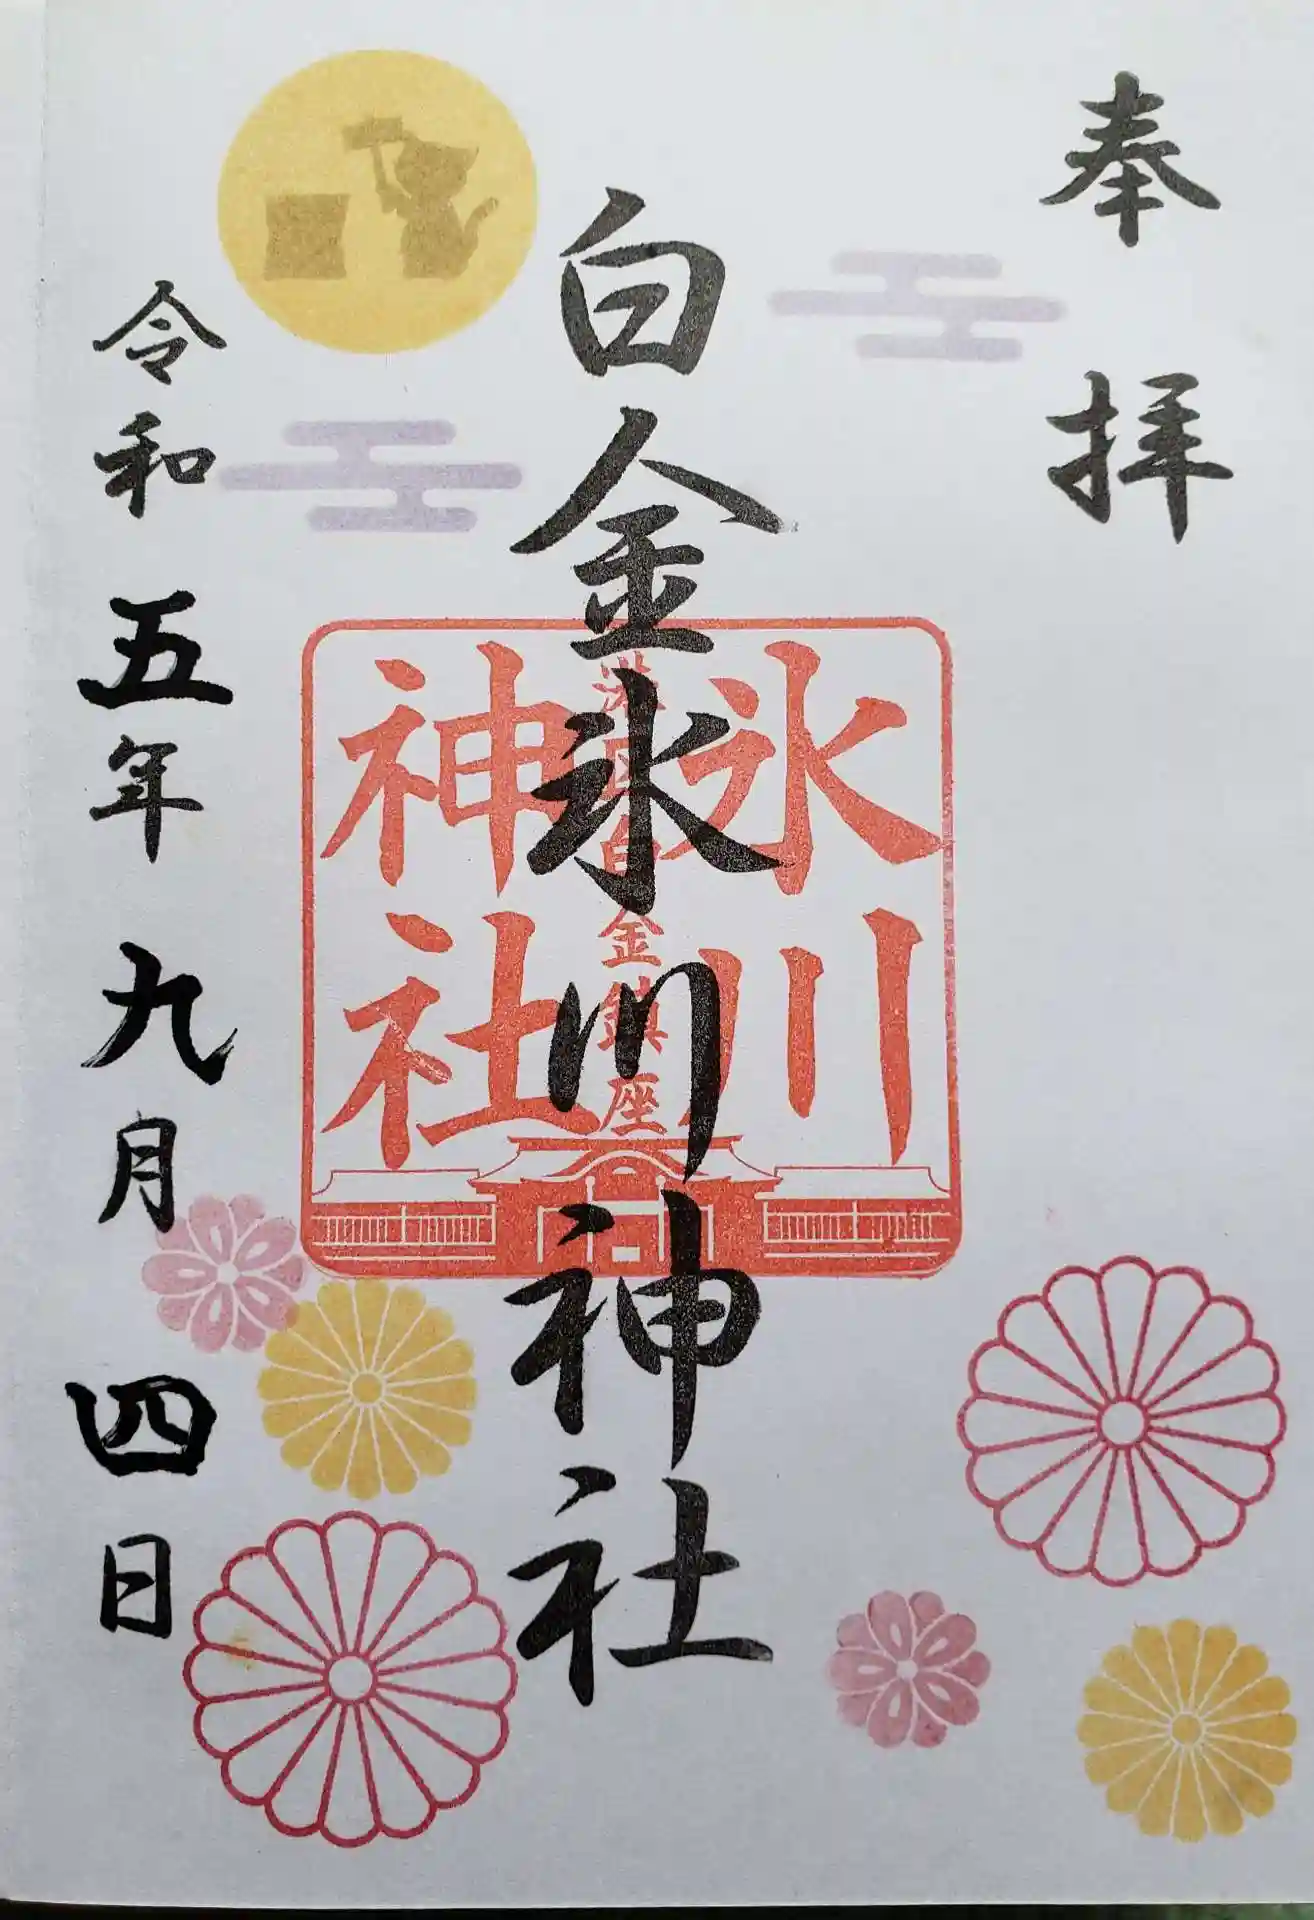 奉拝
白金氷川神社
氷川
港区白金鎮座
神社
令和五年九月四日